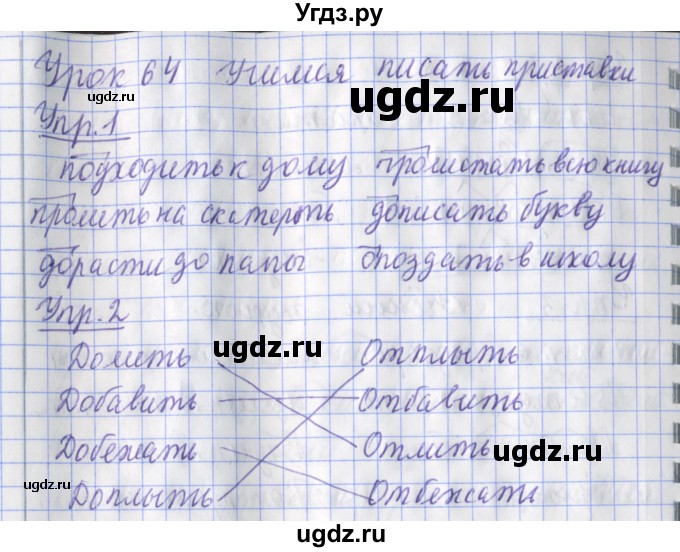 Угдз.ру
Урок 64 Учимся писать приставки
ugdz.ru
ugdz.ru
Упр.1
подходить к дому пролистать всю книгу
пролить на скатерть дописать букву
дорасти до папы опоздать в школу
Упр.2
ugdz.ru
Долить Отплыть
Добавить Отбавить
Добежать Отлить
ugdz.ru
ugdz.ru
Доплыть Отбежать
ugdz.ru